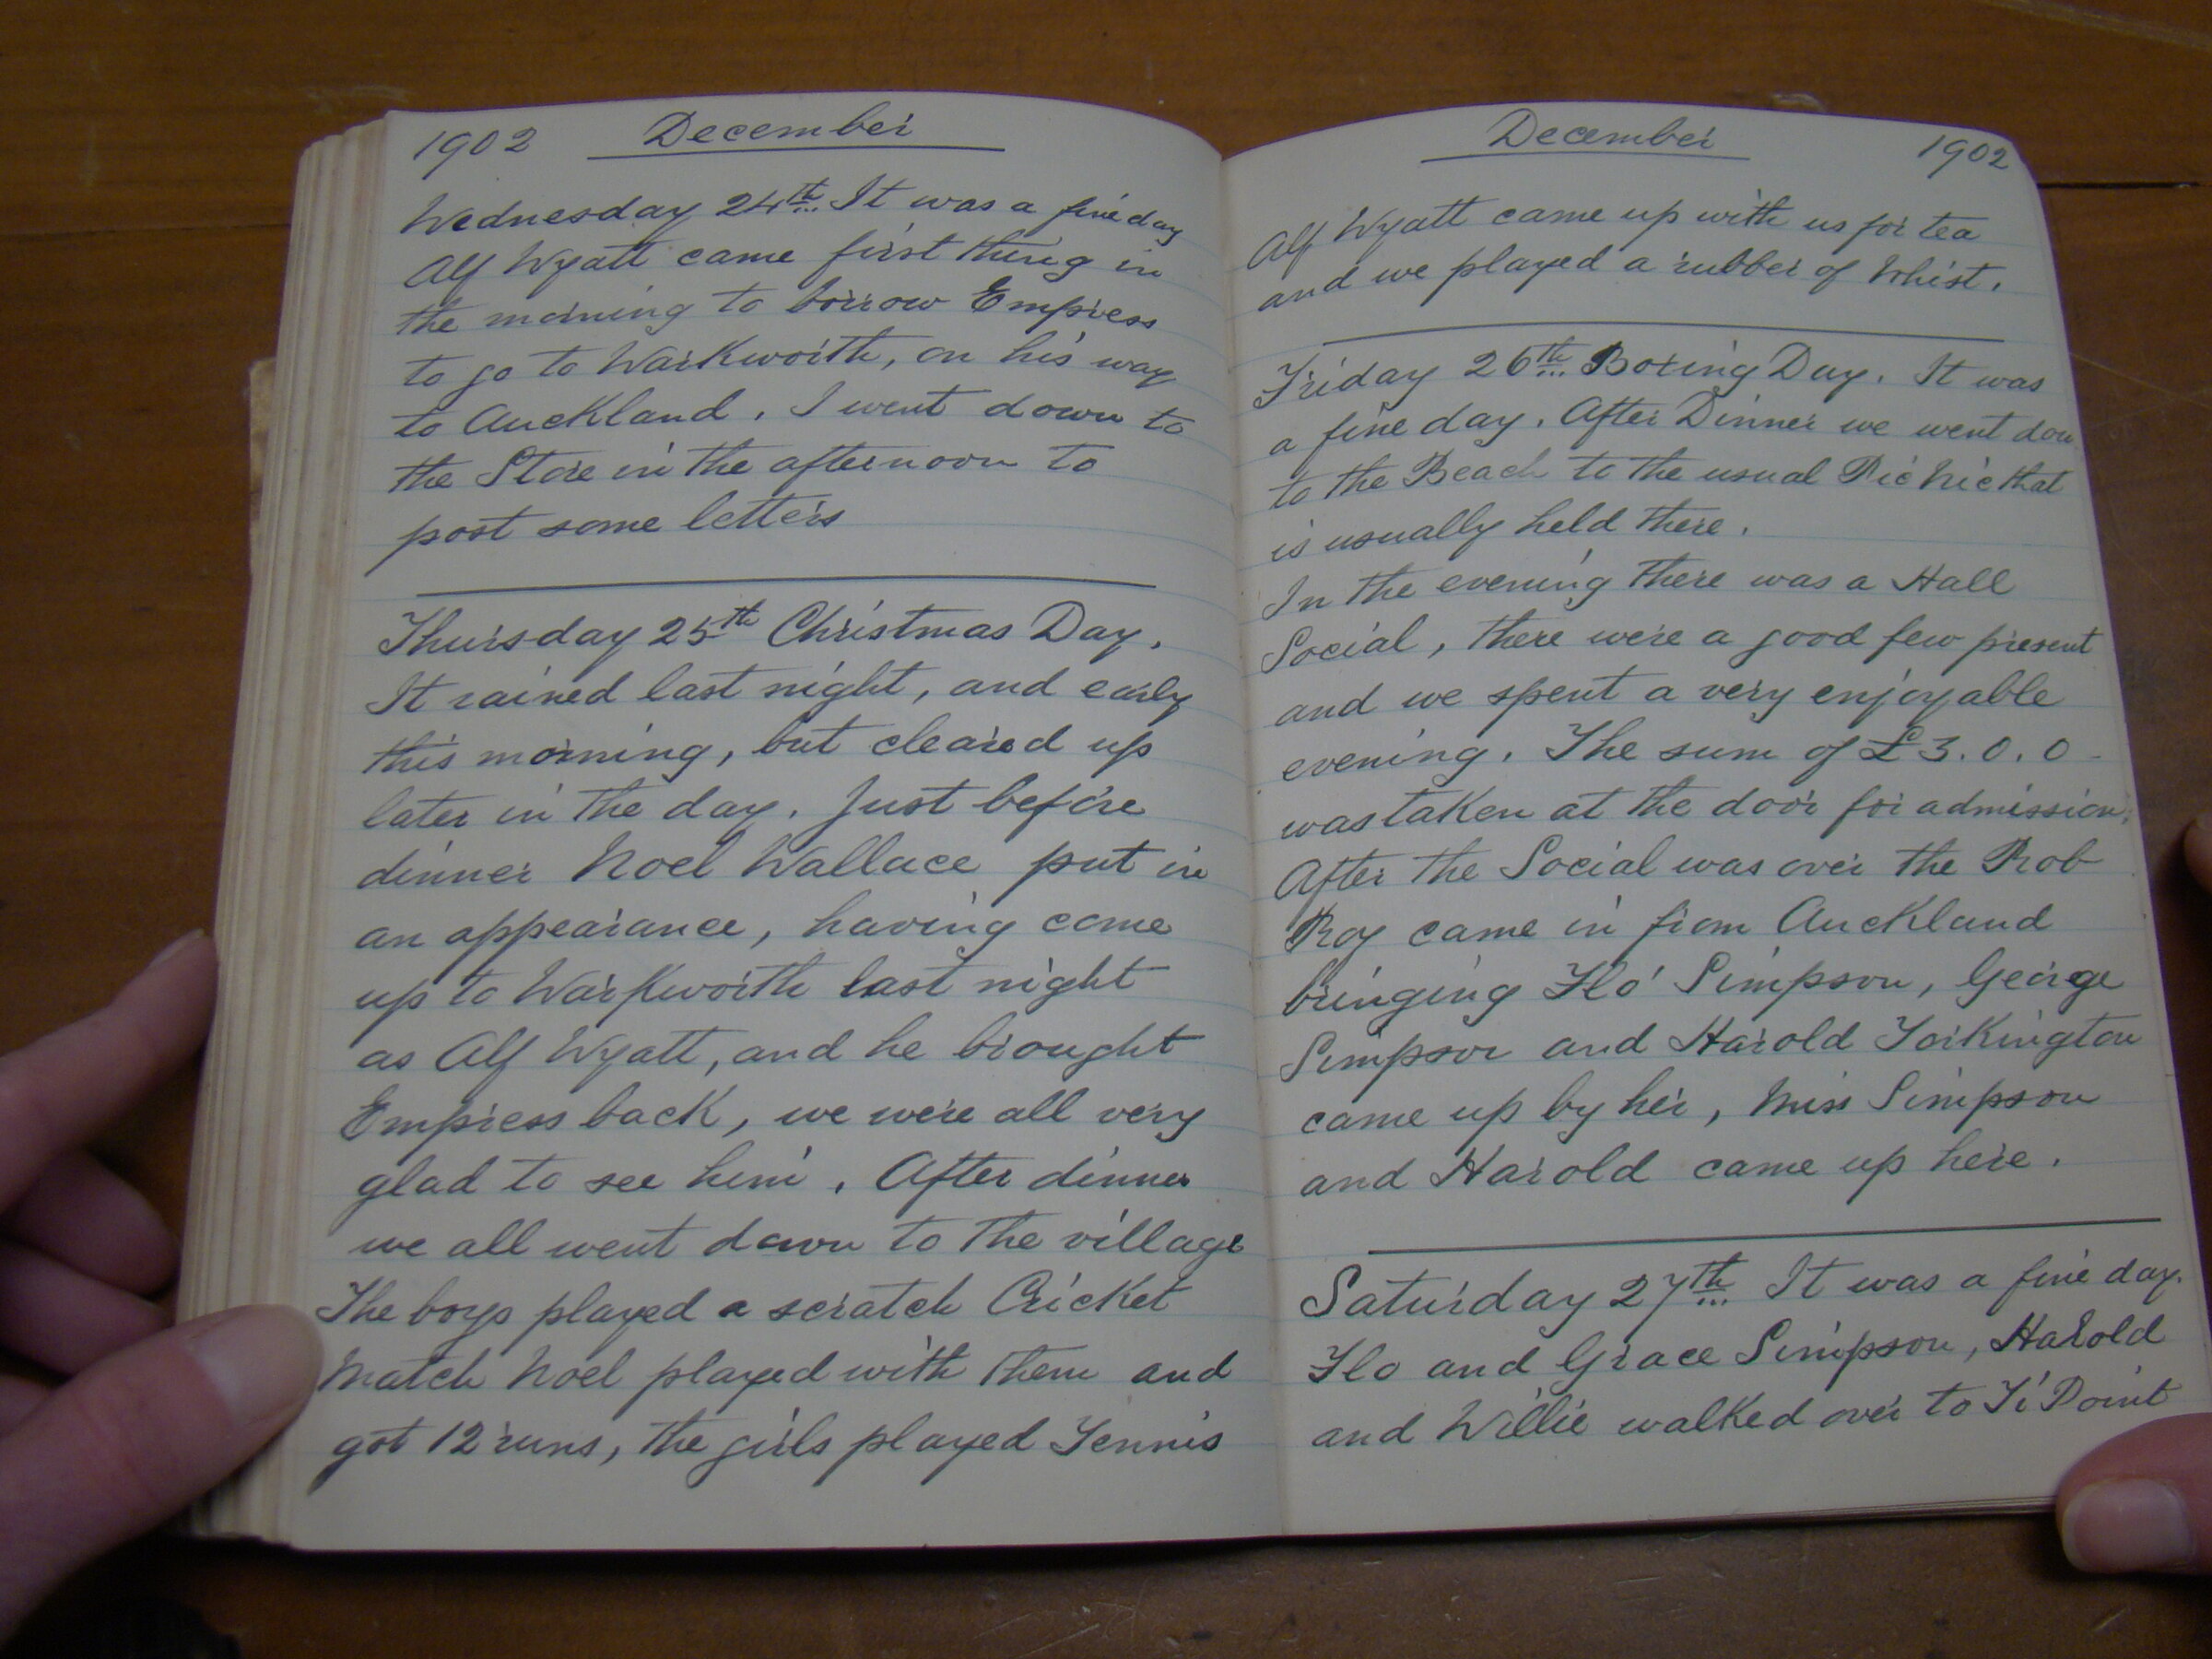 1902 December
Wednesday 24th It was a fine day
Alf Wyatt came first thing in
the morning to borrow Empress
to go to Warkworth, on his way
to Auckland. I went down to
the Store in the afternoon to
post some letters
Thursday 25th Christmas Day.
It rained last night, and early
this morning, but cleared up
later in the day. Just before
dinner Noel Wallace put in
an appearance, having come
up to Warkworth last night
as Alf Wyatt, and he brought
Empress back, we were all very
glad to see him. After dinner
we all went down to the village
The boys played a scratch Cricket
Match Noel played with them and
got 12 runs, the girls played Tennis
December 1902
Alf Wyatt came up with us for tea
and we played a rubber of Whist.
Friday 26th Boxing Day. It was
a fine day. After Dinner we went dow
to the Beach to the usual Pic Nic that
is usually held there.
In the evening there was a Hall
Social, there were a good few present
and we spent a very enjoyable
evening. The sum of £3.0.0-
was taken at the door for admission.
After the Social was over the Rob
Roy came in from Auckland
bringing Flo Simpson, George
Simpson and Harold Torkington
came up by her, Miss Simpson
and Harold came up here.
Saturday 27th It was a fine day.
Flo and Grace Simpson, Harold
and Willie walked over to Ti Point